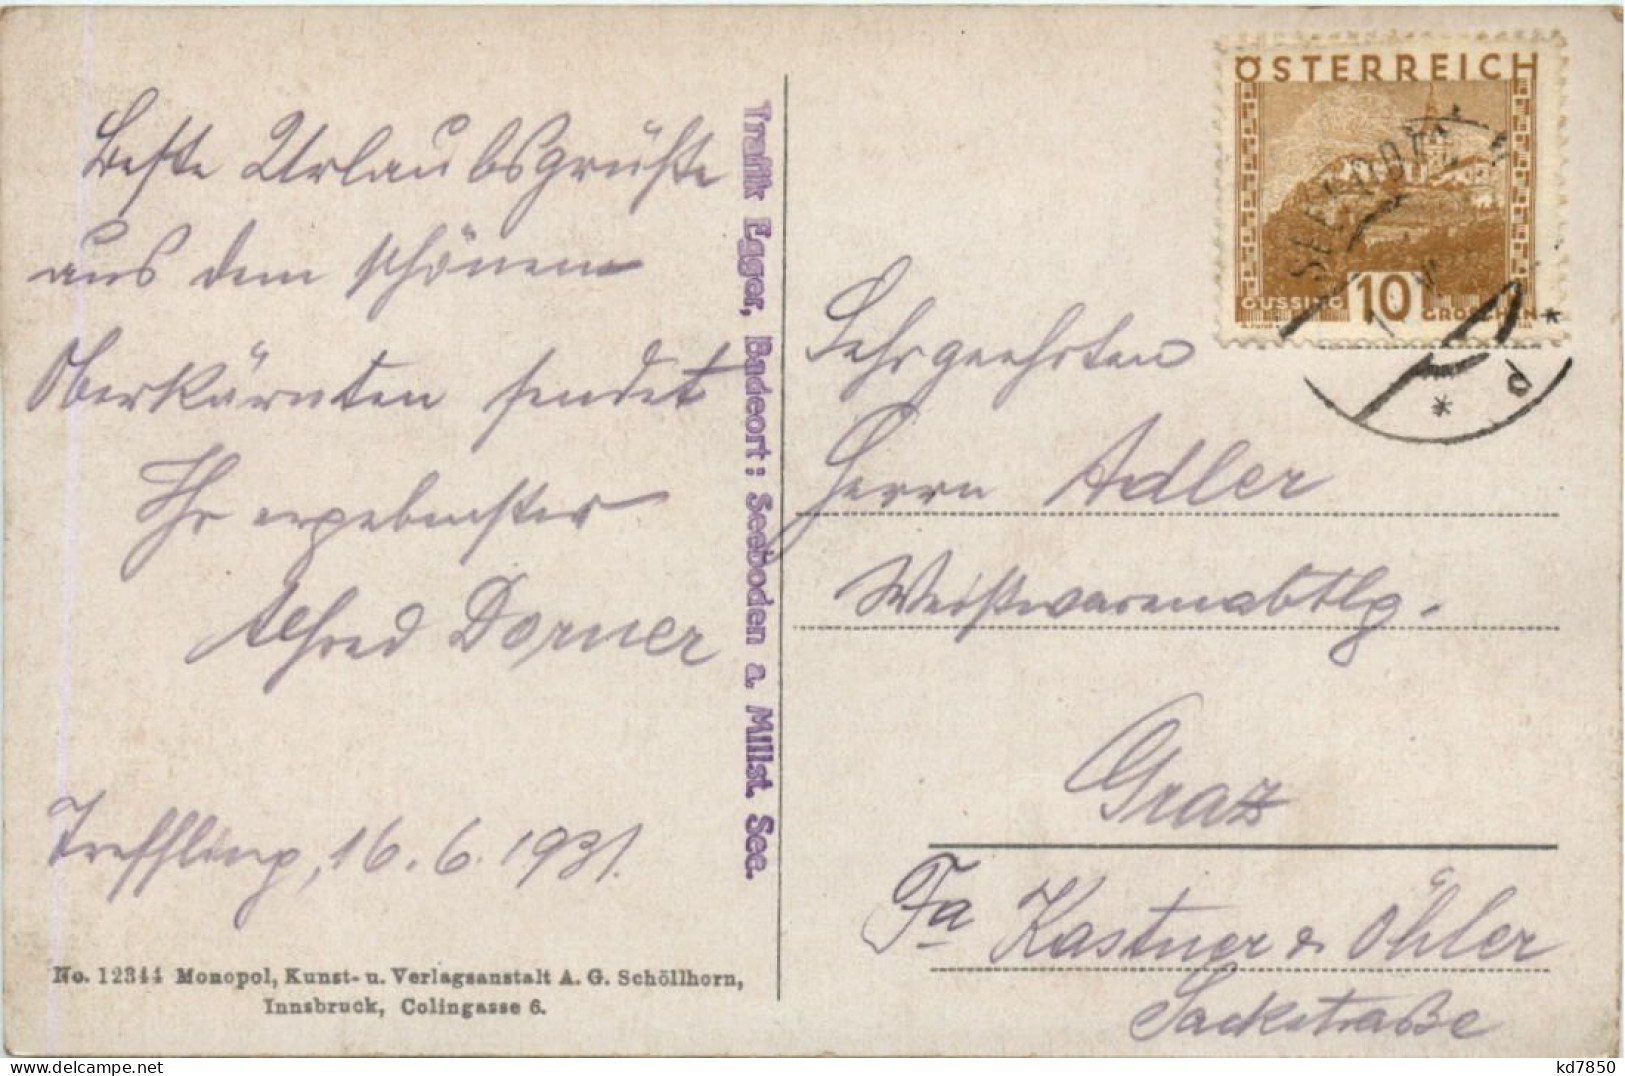 Beste Urlaubsgrüße
aus dem schönen
Oberkärnten sendet
Ihr ergebenster
Alfred Dorner
Treffling, 16.6.1931.
No. 12344 Monopol, Kunst- u. Verlagsanstalt A. G. Schöllhorn,
Innsbruck, Colingasse 6.
Trafik Egger, Badeort: Seeboden a. Millst. See.
ÖSTERREICH
GÜSSING 10 GROSCHEN
d
Sehrgeehrten
Herrn Adler
Weißwarenabtlg.
Graz
Fa Kastner & Öhler
Sackstraße
kd7850